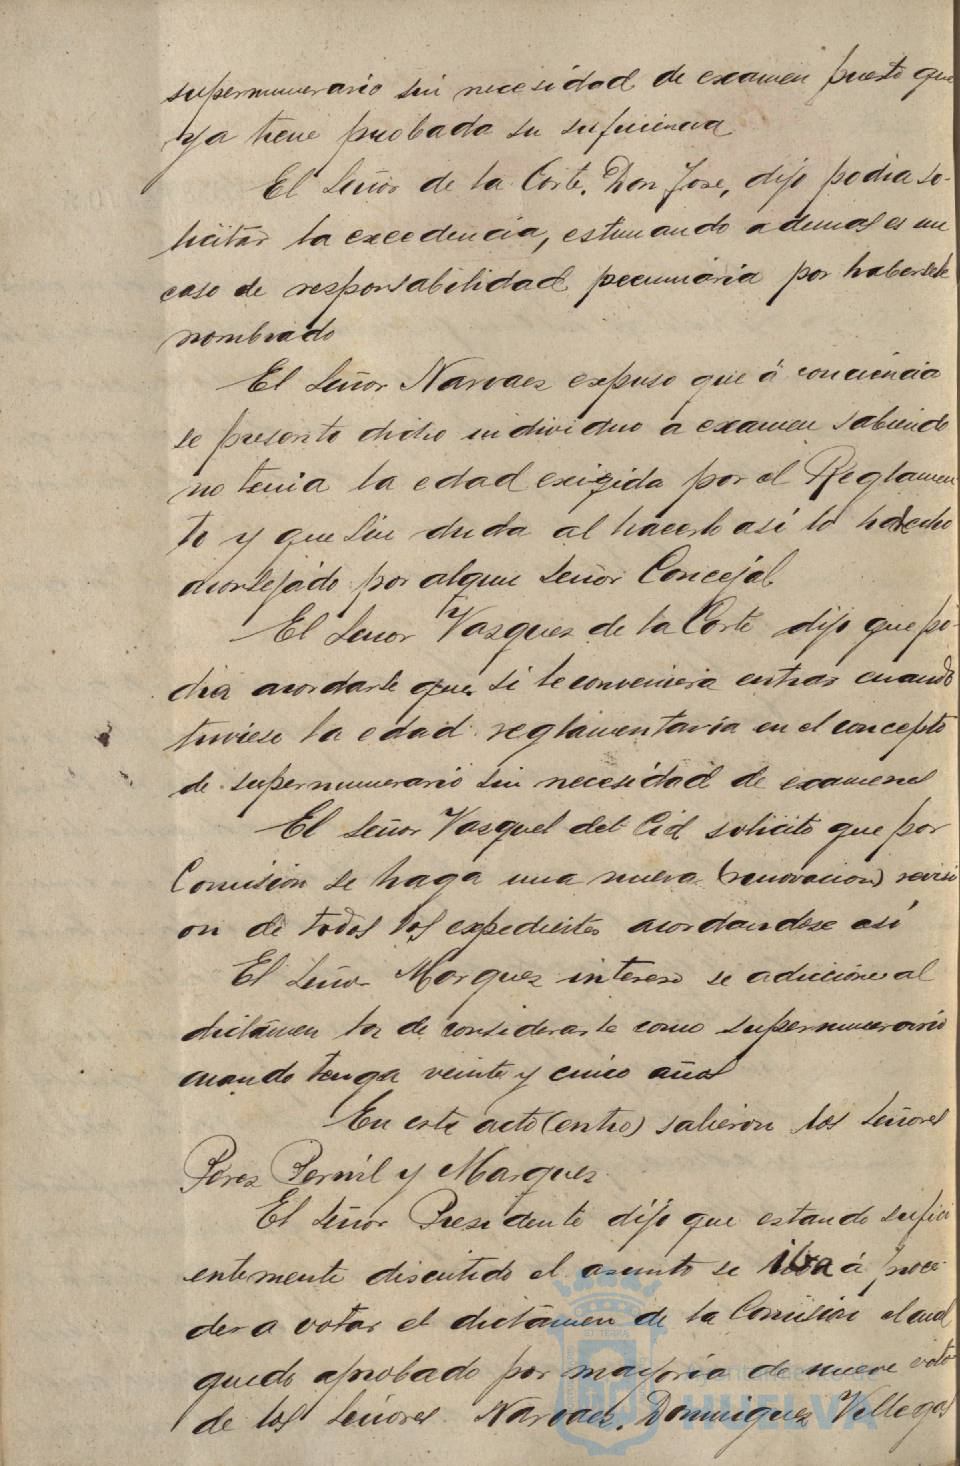 supernumerario sin necesidad de examen puesto que
ya tiene probada su suficiencia
El Señor de la Corte, Don Jose, dijo podia so-
licitar la excedencia, estimando ademas es un
caso de responsabilidad pecuniaria por habersele
nombrado
El Señor Narvaez expuso que á conciencia
se presento dicho individuo a examen sabiendo
no tenia la edad exigida por el Reglamen
to y que sin duda al hacerlo asi lo ha hecho
aconsejado por algun Señor Concejal
El Señor Vazquez de la Corte dijo que po-
dia acordarle que si le conveniera entrar cuando
tuviese la edad reglamentaria en el concepto
de supernumerario sin necesidad de examenes
El Señor Vazquez del Cid solicito que por
Comision se haga una nueva (renovacion) revisi
on de todos los expedientes acordandose asi
El Señor Marquez intereso se adicione al
dictámen la de considerarle como supernumerario
cuando tenga veinte y cinco años
En este acto (entro) salieron los Señores
Perez Pernil y Marquez.
El Señor Presidente dijo que estando sufici
entemente discutido el asunto se iba á proce
der a votar el dictámen de la Comision el cual
quedo aprobado por mayoria de nueve votos
de los Señores Narvaez, Dominguez Villegas
Ayuntamiento de
HUELVA